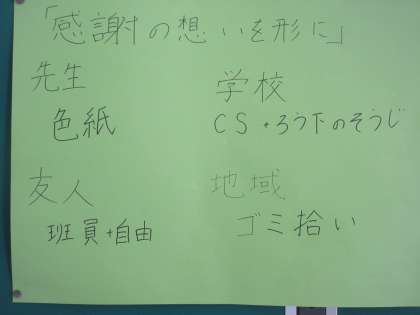 「感謝の想いを形に」
先生
色紙
学校
CS+ろう下のそうじ
友人
班員+自由
地域
ゴミ拾い